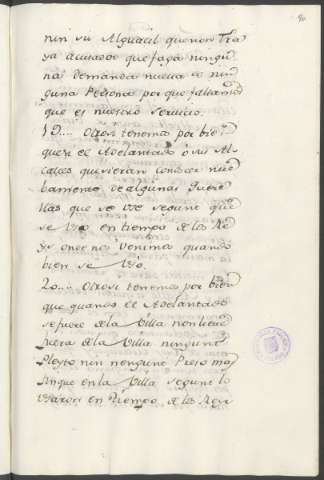 90
nin su Alguacil que non tra
ya acuciado que faga ningu
na demanda nueva a nin
guna Persona por que fallamos
que es nuestro servicio.
19.... Otrosi tenemos por bien
que si el Adelantado ó su Al
calles quisieren conocer nue
bamente de algunas quere
llas que se use segunt que
se uso en tiempo de los Re
yes onde nos venimos quando
bien se uso.
20.... Otrosi tenemos por bien
que quando el Adelantado
se fuere de la Villa non lieve
fuera de la Villa ningunt
Pleyto nin ningunt Preso mas
finque en la Villa segunt lo
usaron en Tiempo de los Reye